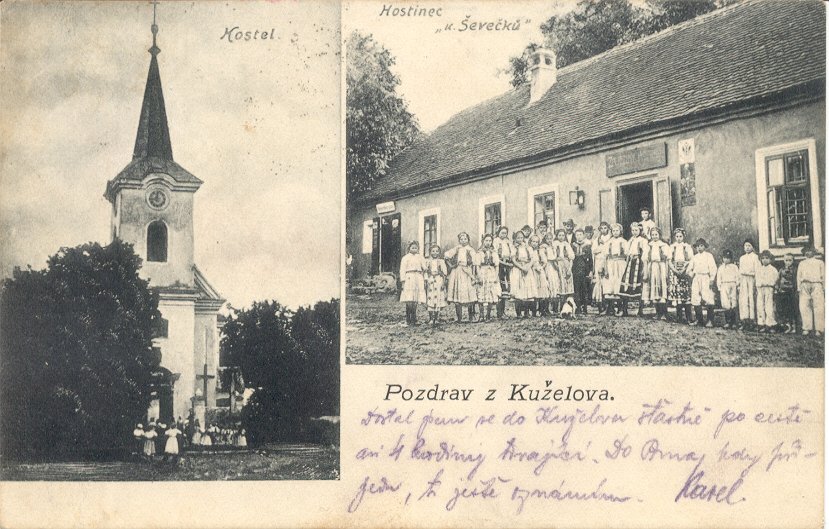 Kostel.
Hostinec
„u. Ševečků"
Pozdrav z Kuželova.
Dostal jsem se do Kuželova šťastně po cestě
4 hodiny trvající. Do Brna, kdy při-
jedu, ti ještě oznámím. Karel.